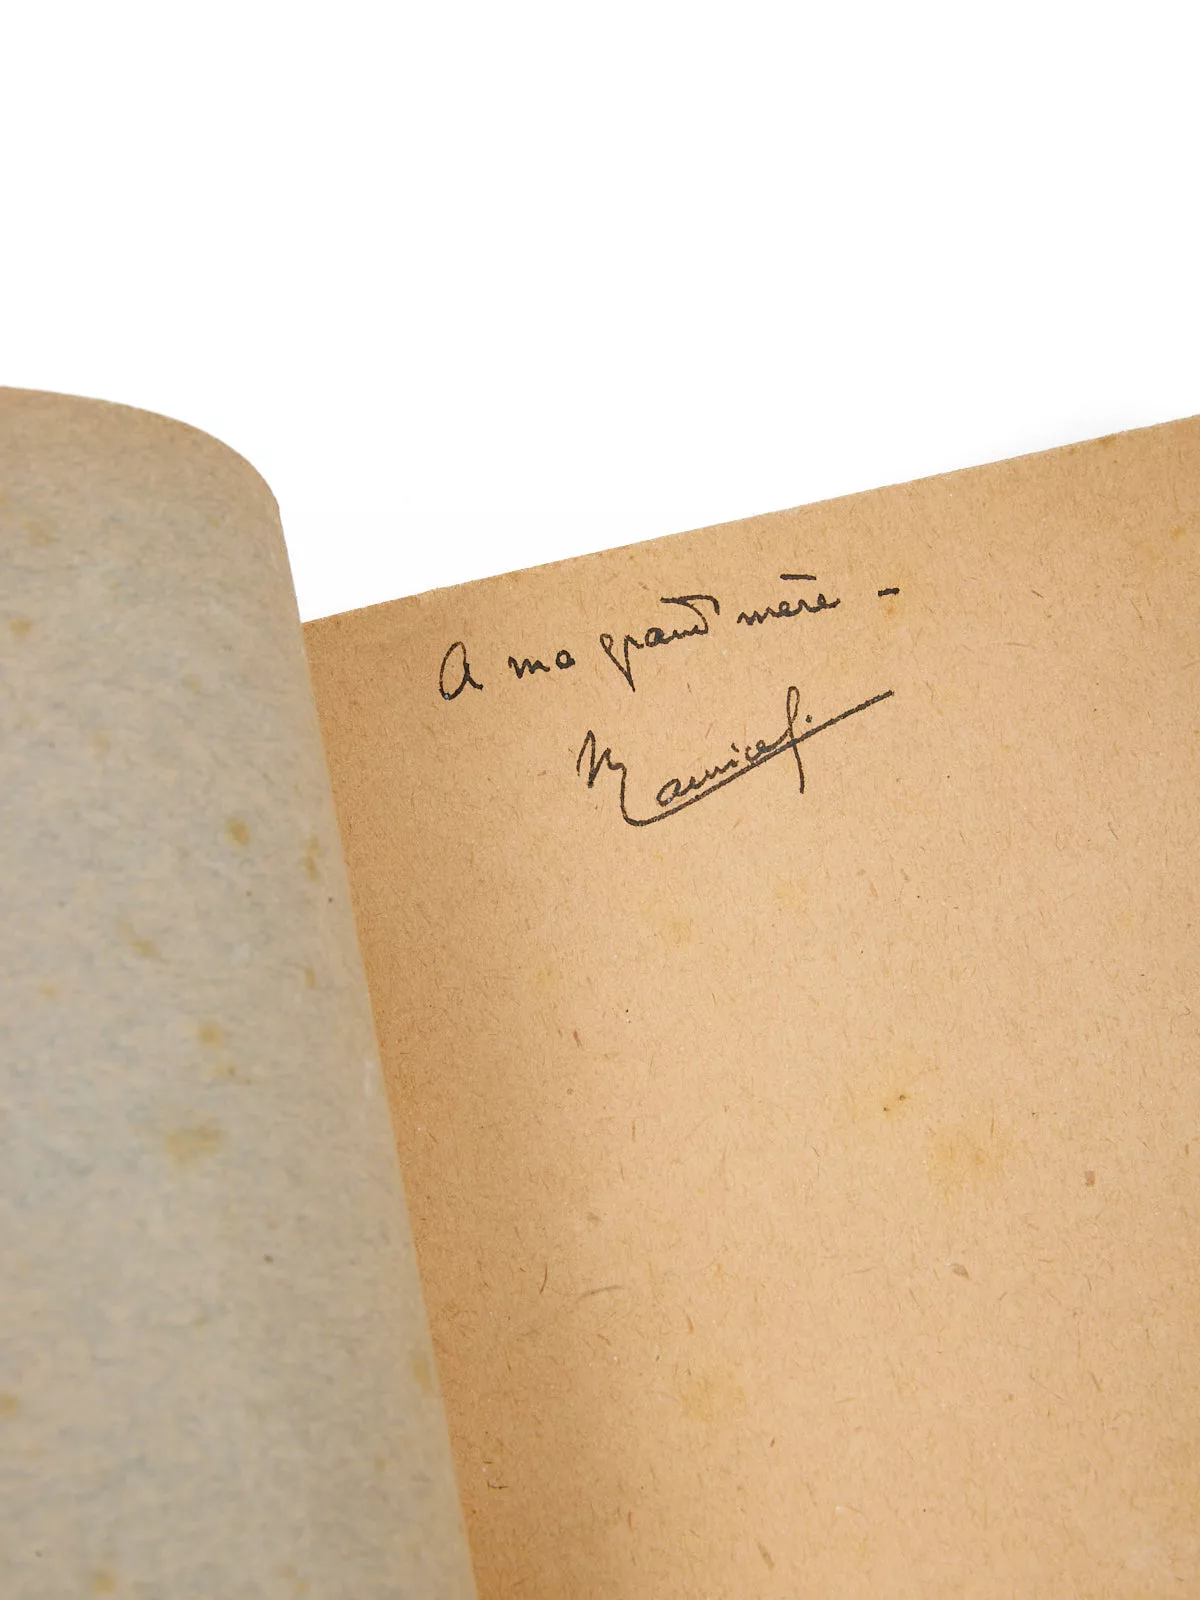 A ma grand mère –
Maurice f.